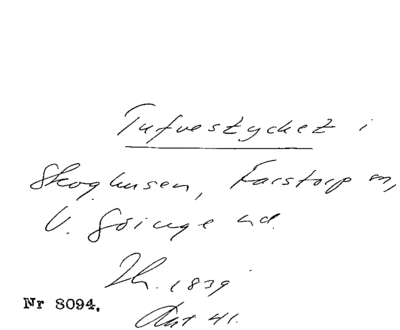 Tufvestycket i
Skoghusen, Farstorp sn,
V. Göinge hd.
Lh. 1839
Akt 41.
Nr 8094.